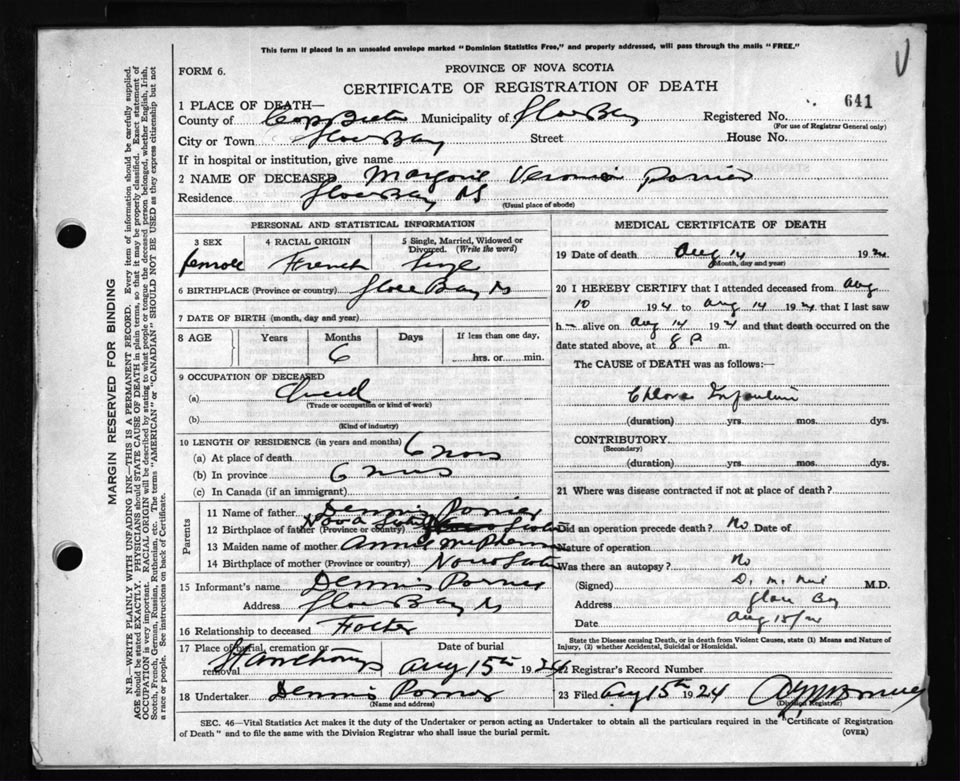 This form if placed in an unsealed envelope marked "Dominion Statistics Free," and properly addressed, will pass through the mails "FREE."
FORM 6.
PROVINCE OF NOVA SCOTIA
CERTIFICATE OF REGISTRATION OF DEATH
641
1 PLACE OF DEATH—
County of Cape Breton Municipality of Glace Bay Registered No.
(For use of Registrar General only)
City or Town Glace Bay Street House No.
If in hospital or institution, give name
2 NAME OF DECEASED Marjorie Veronica Porrier
Residence Glace Bay NS
(Usual place of abode)
PERSONAL AND STATISTICAL INFORMATION
3 SEX 4 RACIAL ORIGIN 5 Single, Married, Widowed or Divorced. (Write the word)
female French Single
6 BIRTHPLACE (Province or country) Glace Bay NS
7 DATE OF BIRTH (month, day and year)
8 AGE Years Months Days If less than one day,
6 hrs. or min.
9 OCCUPATION OF DECEASED
(a) Child
(Trade or occupation or kind of work)
(b)
(Kind of industry)
10 LENGTH OF RESIDENCE (in years and months)
(a) At place of death 6 mos
(b) In province 6 mos
(c) In Canada (if an immigrant)
Parents
11 Name of father Dennis Porrier
12 Birthplace of father (Province or country) Nova Scotia
13 Maiden name of mother Annie
14 Birthplace of mother (Province or country) Nova Scotia
15 Informant's name Dennis Porrier
Address Glace Bay NS
16 Relationship to deceased Father
17 Place of burial, cremation or removal Date of burial
Aug 15th 1924
18 Undertaker Dennis Porrier
(Name and address)
MEDICAL CERTIFICATE OF DEATH
19 Date of death Aug 14 1924
(Month, day and year)
20 I HEREBY CERTIFY that I attended deceased from Aug
10 1924 to Aug 14 1924 that I last saw
h alive on Aug 14 1924 and that death occurred on
date stated above, at 8 P m.
The CAUSE OF DEATH was as follows:—
Cholera Infantum
(duration) yrs. mos. dys.
CONTRIBUTORY
(Secondary)
(duration) yrs. mos. dys.
21 Where was disease contracted if not at place of death?
Did an operation precede death? No Date of
Nature of operation
Was there an autopsy? No
(Signed) D. M. M.D.
Address Glace Bay
Date Aug 15/24
State the Disease causing Death, or in death from Violent Causes, state (1) Means and Nature of Injury, (2) whether Accidental, Suicidal or Homicidal.
22 Registrar's Record Number
23 Filed Aug 15th 1924
(Division Registrar)
SEC. 46—Vital Statistics Act makes it the duty of the Undertaker or person acting as Undertaker to obtain all the particulars required in the "Certificate of Registration
of Death" and to file the same with the Division Registrar who shall issue the burial permit.
(OVER)
MARGIN RESERVED FOR BINDING
N.B.—WRITE PLAINLY WITH UNFADING INK—THIS IS A PERMANENT RECORD. Every item of information should be carefully supplied.
AGE should be stated EXACTLY. PHYSICIANS should STATE CAUSE OF DEATH in plain terms, so that it may be properly classified. Exact statement of
OCCUPATION is very important. RACIAL ORIGIN will be described by stating to what people or tongue the deceased person belonged, whether English, Irish,
Scotch, French, German, Russian, Ruthenian, etc. The terms "AMERICAN" or "CANADIAN" SHOULD NOT BE USED as they express citizenship but not
a race or people. See instructions on back of Certificate.